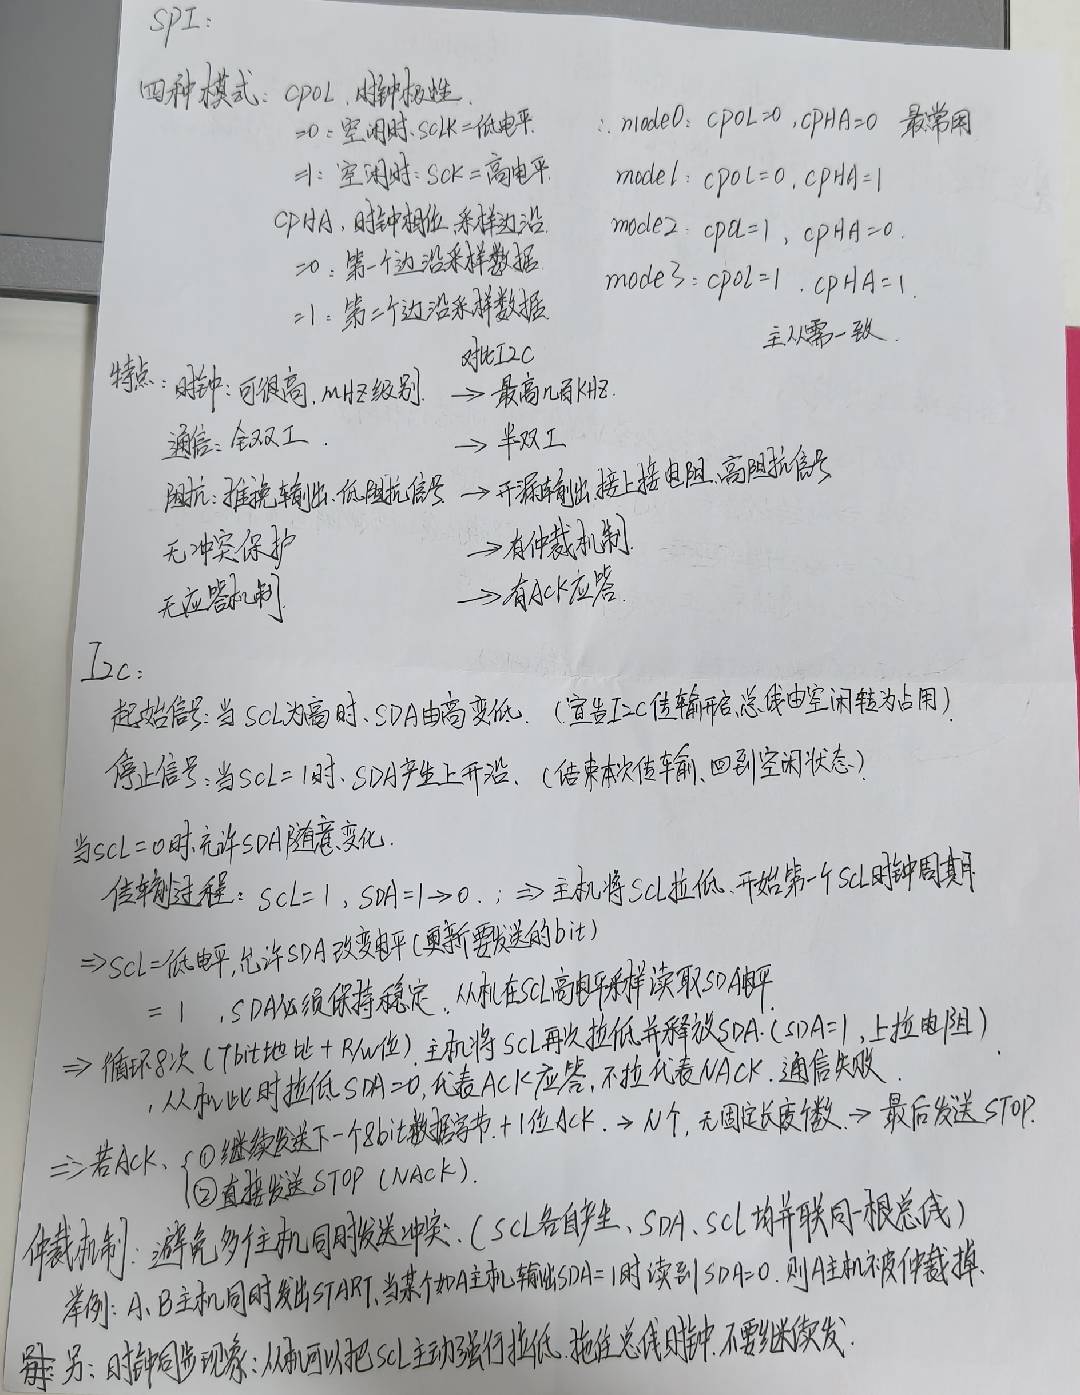 SPI:
四种模式: CPOL、时钟极性.
=0: 空闲时、SCLK=低电平.
=1: 空闲时: SCK=高电平.
CPHA、时钟相位、采样边沿.
=0: 第一个边沿采样数据
=1: 第二个边沿采样数据
∴ mode0: CPOL=0, CPHA=0 最常用
mode1: CPOL=0, CPHA=1
mode2: CPOL=1, CPHA=0.
mode3: CPOL=1, CPHA=1.
主从需一致.
对比I2C
特点: 时钟: 可很高, MHZ级别. → 最高几百KHZ.
通信: 全双工. → 半双工
阻抗: 推挽输出、低阻抗信号 → 开漏输出、接上接电阻、高阻抗信号
无冲突保护 → 有仲裁机制.
无应答机制. → 有ACK应答.
I2C:
起始信号: 当SCL为高时、SDA由高变低. (宣告I2C传输开启、总线由空闲转为占用)
停止信号: 当SCL=1时、SDA产生上升沿. (结束本次传输、回到空闲状态)
当SCL=0时、允许SDA随意变化.
传输过程: SCL=1, SDA=1→0.; ⇒ 主机将SCL拉低、开始第一个SCL时钟周期
⇒ SCL=低电平, 允许SDA改变电平(更新要发送的bit)
= 1 , SDA必须保持稳定, 从机在SCL高电平采样读取SDA电平
⇒ 循环8次 (7bit地址+R/W位) 主机将SCL再次拉低并释放SDA. (SDA=1, 上拉电阻)
, 从机此时拉低SDA=0, 代表ACK应答, 不拉代表NACK. 通信失败.
⇒ 若ACK、{①继续发送下一个8bit数据字节+1位ACK. → N个, 无固定长度个数. → 最后发送STOP.
②直接发送STOP (NACK).
仲裁机制: 避免多个主机同时发送冲突. (SCL各自产生、SDA、SCL均并联同一根总线)
举例: A、B主机同时发出START、当某个如A主机输出SDA=1时读到SDA=0. 则A主机被仲裁掉.
另: 时钟同步现象: 从机可以把SCL主动强行拉低、拖住总线时钟、不要继续发.